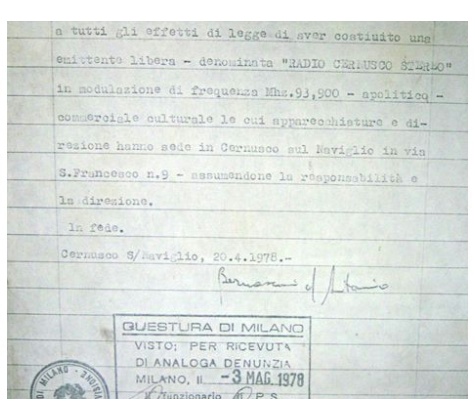 a tutti gli effetti di legge di aver costiuito una
emittente libera - denominata "RADIO CERNUSCO STEREO"
in modulazione di frequenza Mhz.93,900 - apolitico -
commerciale culturale le cui apparecchiature e di-
rezione hanno sede in Cernusco sul Naviglio in via
S.Francesco n.9 - assumendone la responsabilità e
la direzione.
In fede.
Cernusco S/Naviglio, 20.4.1978.-
QUESTURA DI MILANO
VISTO: PER RICEVUTA
DI ANALOGA DENUNZIA
MILANO, IL -3 MAG. 1978
Funzionario P.S.
DI MILANO